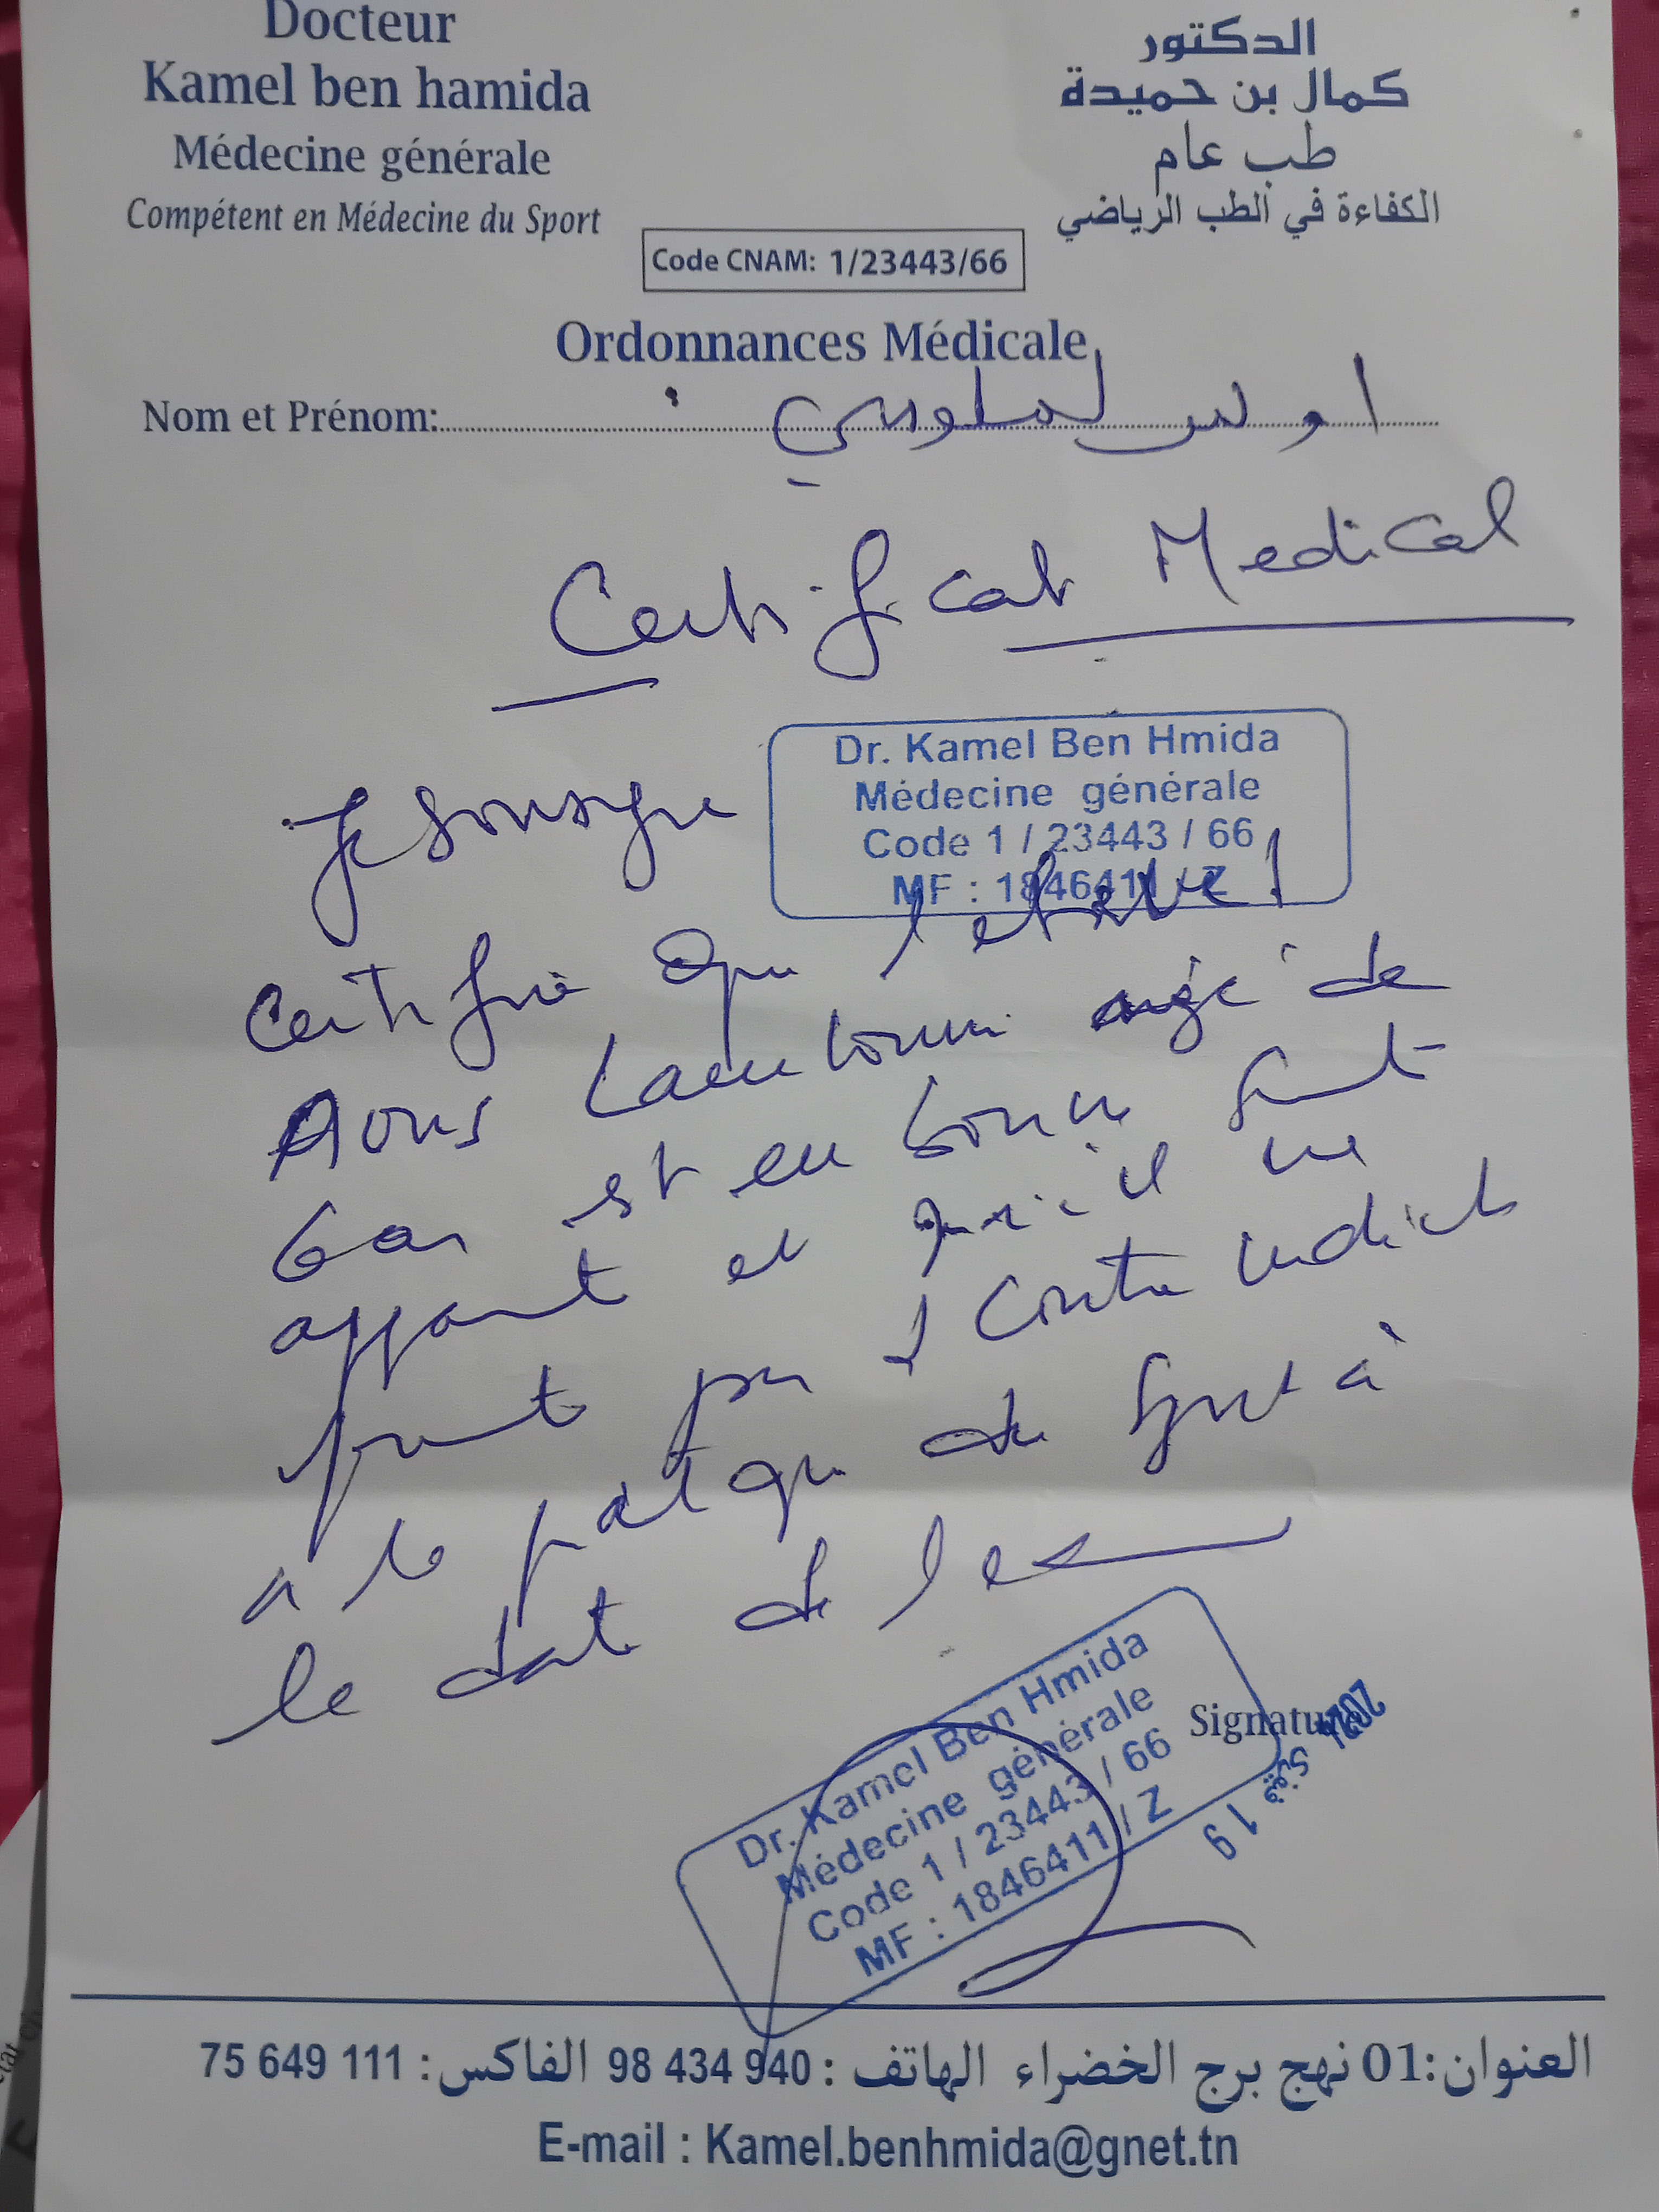 Docteur
Kamel ben hamida
Médecine générale
Compétent en Médecine du Sport
الدكتور
كمال بن حميدة
طب عام
الكفاءة في الطب الرياضي
Code CNAM: 1/23443/66
Ordonnances Médicale
Nom et Prénom:
Certificat Medical
Je soussigne
Dr. Kamel Ben Hmida
Médecine générale
Code 1 / 23443 / 66
MF : 1846411 / Z
Certifie que l'eleve
Aous agé de
6 ans est en bonne santé
apparente et qu'il ne
pas contre indicat
a la pratique de sport à
la date de
Signature
Dr. Kamel Ben Hmida
Médecine générale
Code 1 / 23443 / 66
MF : 1846411 / Z
19
العنوان:01 نهج برج الخضراء الهاتف : 98 434 940 الفاكس : 75 649 111
E-mail : Kamel.benhmida@gnet.tn